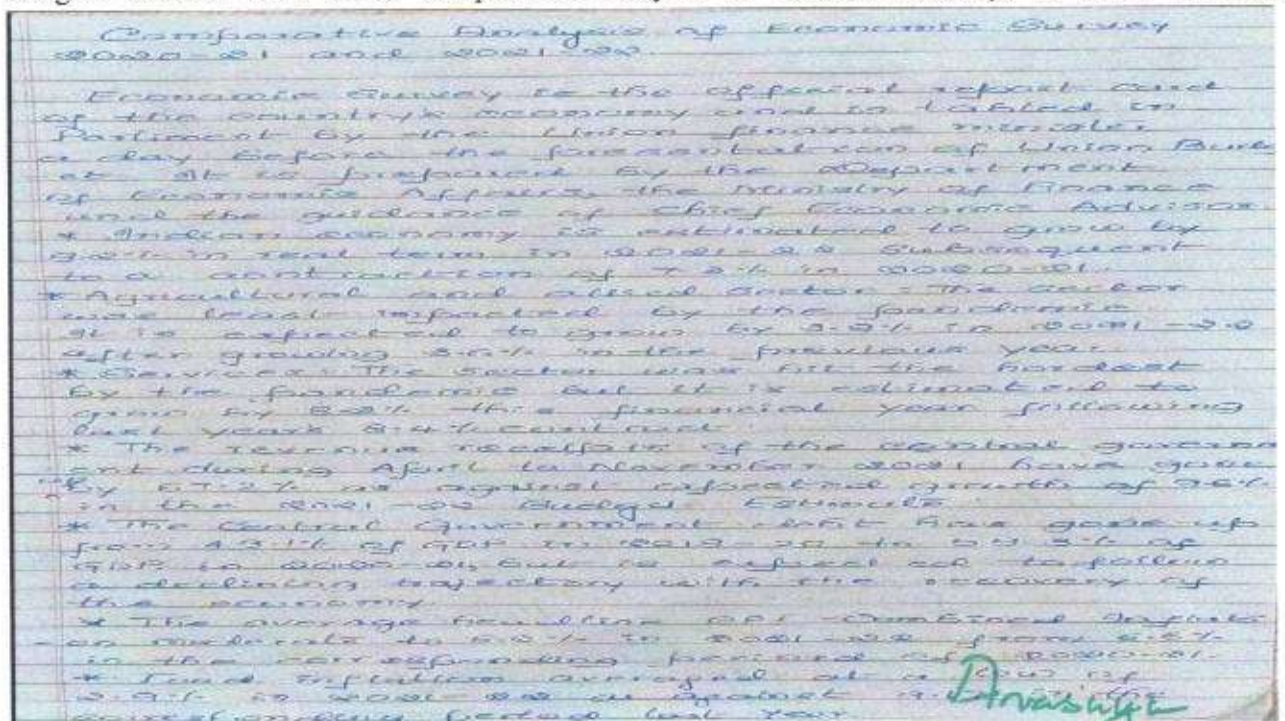 Comparative Analysis of Economic Survey
2020-21 and 2021-22.
Economic Survey is the official report card
of the country's economy and is tabled in
Parliment by the Union finance minister
a day before the presentation of Union Bud
et. It is prepared by the Department
of Economic Affairs, the Ministry of Finance
und the guidance of Chief Economic Advisor.
* Indian economy is estimated to grow by
9.2% in real term in 2021-22 subsequent
to a contraction of 7.3% in 2020-21.
* Agricultural and allied sector: The sector
was least impacted by the pandemic
It is expected to grow by 3.9% in 2021-22
after growing 3.6% in the previous year.
* Services: The sector was hit the hardest
by the pandemic but it is estimated to
grow by 8.2% this financial year following
last years 8.4% contract
* The revenue receipts of the central governm
ent during April to November 2021 have gone
by 67.2% as against expected growth of 9.6%
in the 2021-22 Budget Estimate
* The Central Government debt has gone up
from 49.1% of GDP in 2019-20 to 59.3% of
GDP in 2020-21, but is expected to follow
a declining trajectory with the recovery of
the economy.
* The average headline CPI-Combined Inflati
on moderate to 5.2% in 2021-22 from 6.6%
in the corresponding period of 2020-21.
* Food inflation averaged at a low of
2.9% in 2021-22 as against 9.
corresponding period last year.